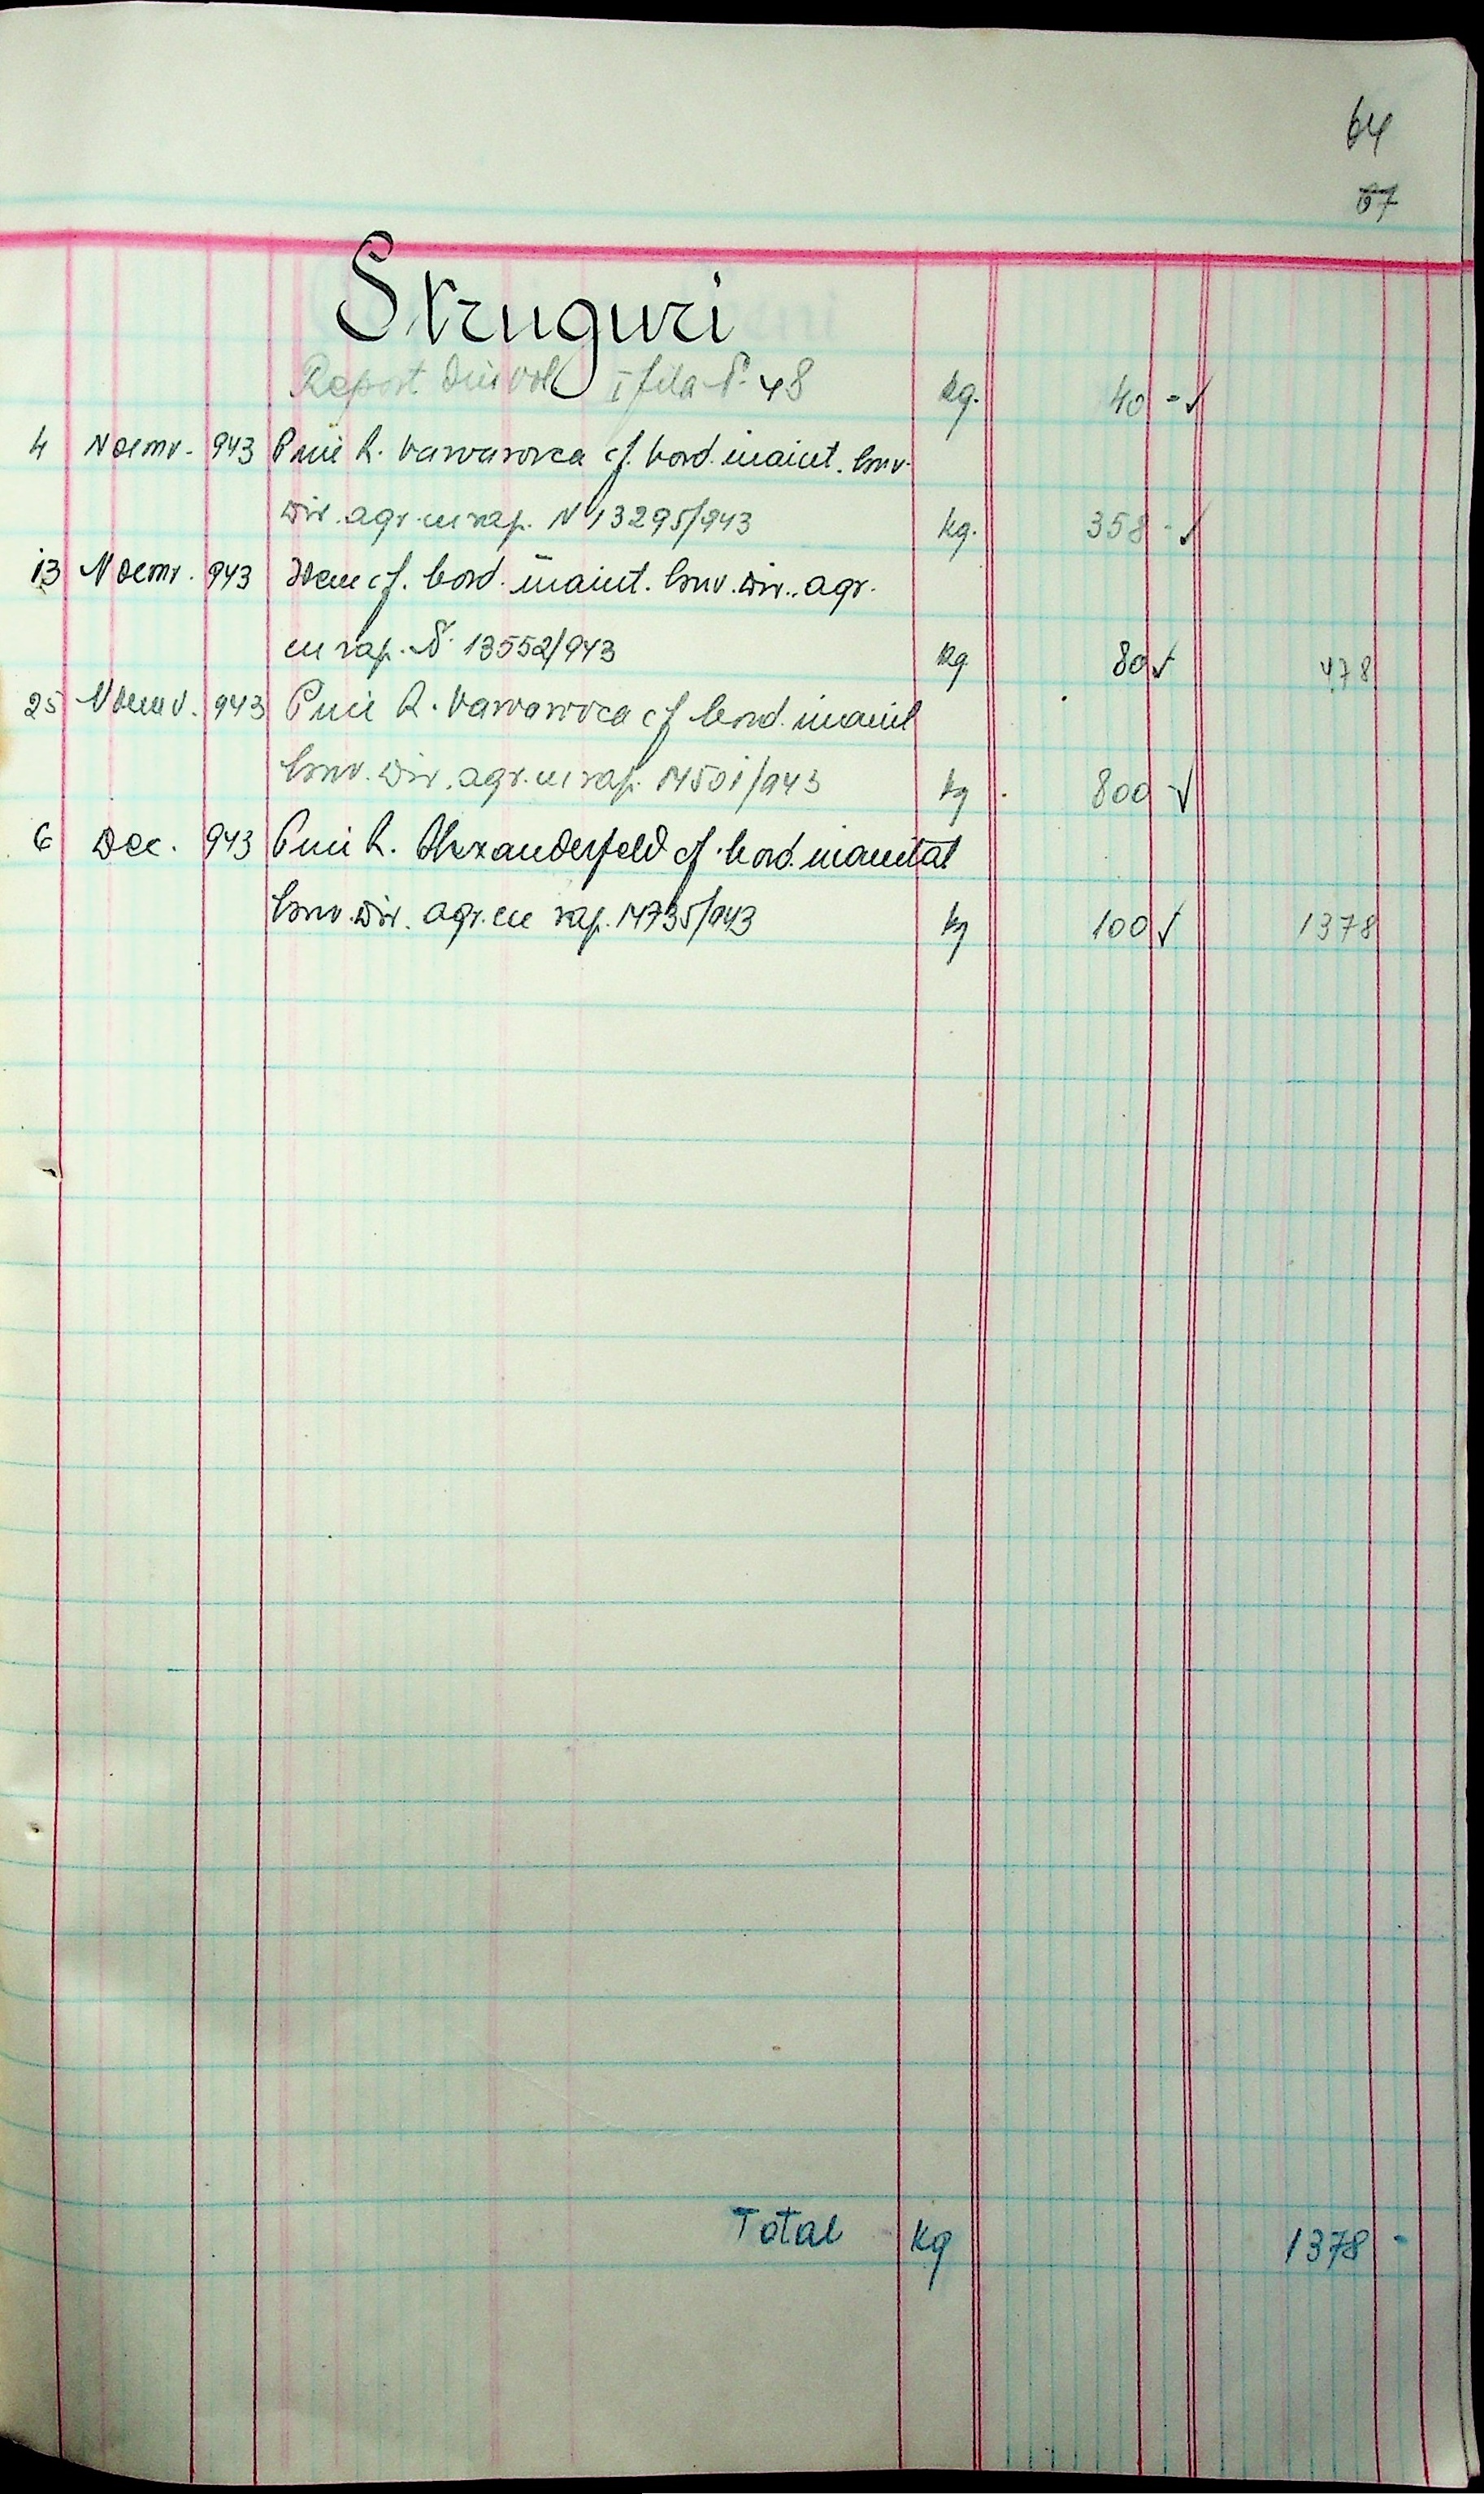 64
67
Struguri
Report din vol. I fila N. 48 kg. 40 - ✓
4 Noemv. 943 Prin R. Varvarovca cf. bord. inaint. Insp.
Dir. agr. cu rap. N 13295/943 kg. 358 - ✓
13 Noemv. 943 Idem cf. bord. inaint. dir. agr.
cu rap. N. 13552/943 kg 80 ✓ 478
25 Noemv. 943 Prin R. Varvarovca cf bord. inaint
Dir. agr. cu rap. 14501/943 kg 800 ✓
6 Dec. 943 Prin R. Alexanderfeld cf. bord. inaintat
Dir. agr. cu rap. 14735/943 kg 100 ✓ 1378
Total kg 1378 -